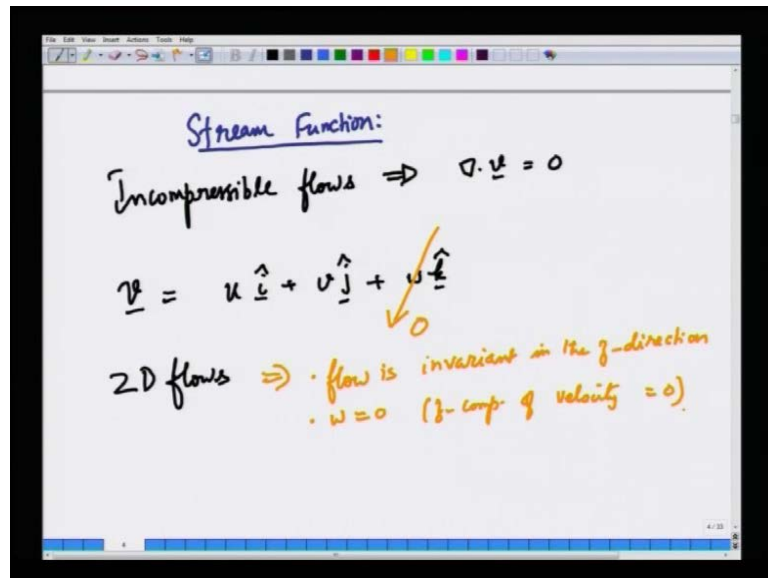 File Edit View Insert Actions Tools Help
Stream Function:
Incompressible flows ⇒ ∇. v = 0
v = u î + v ĵ + w k̂
0
2D flows ⇒ · flow is invariant in the z-direction
· w = 0 (z-comp. of velocity = 0).
4/33
4